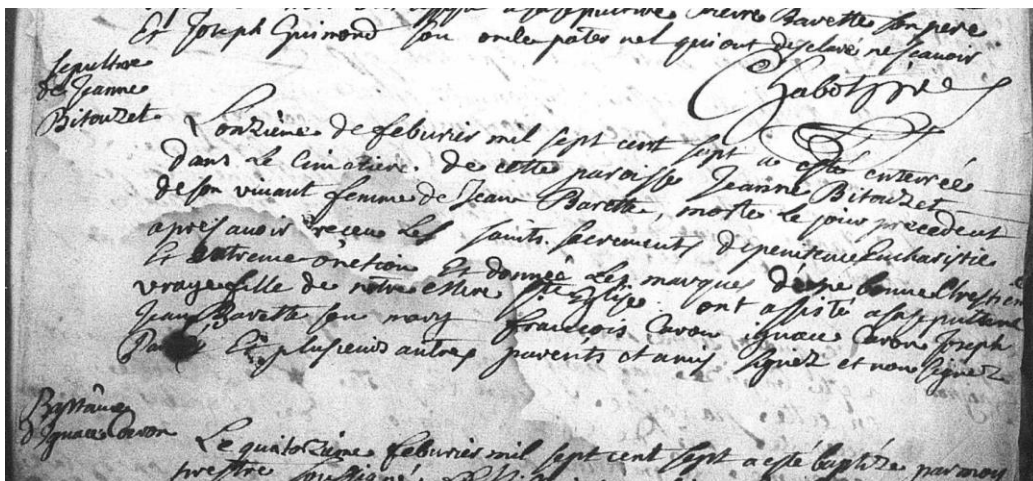 a sa sepulture Pierre Barette son pere
Et Joseph Guimond son oncle paternel qui ont desclaré ne scavoir
Chabot ptre
Sepulture
de Jeanne
Bitouzet
L'onzième de feburier mil sept cent sept a esté enterrée
dans Le Cimatiere de cette paroisse Jeanne Bitouzet
de son vivant femme de Jean Barette, morte le jour precedent
apres avoir receue Les saints sacrements de penitence Eucharistie
Et extreme onction Et donnée Les marques d'une bonne Chrestienne
vraye fille de notre mere Ste Eglise. ont assisté a sa sepulture
Jean Barette son mary francois Caron ignace Caron Joseph
Paré Et plusieurs autres parents et amis signez et non signez
Baptême
d'Ignace Caron
Le quatorzième feburier mil sept cent sept a esté baptizé par moy
prestre soussigné